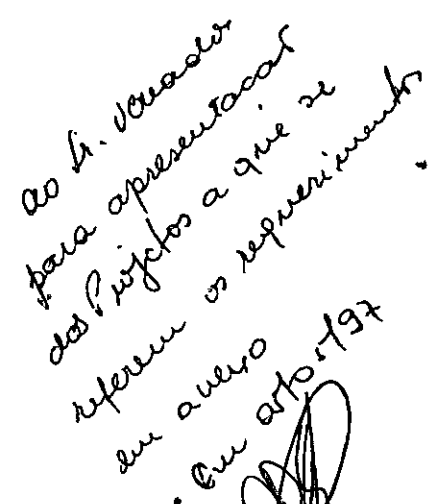 ao Sr. Vereador
para apresentacas
dos Projctos a que se
referem os requerimentos
em anexo
Em